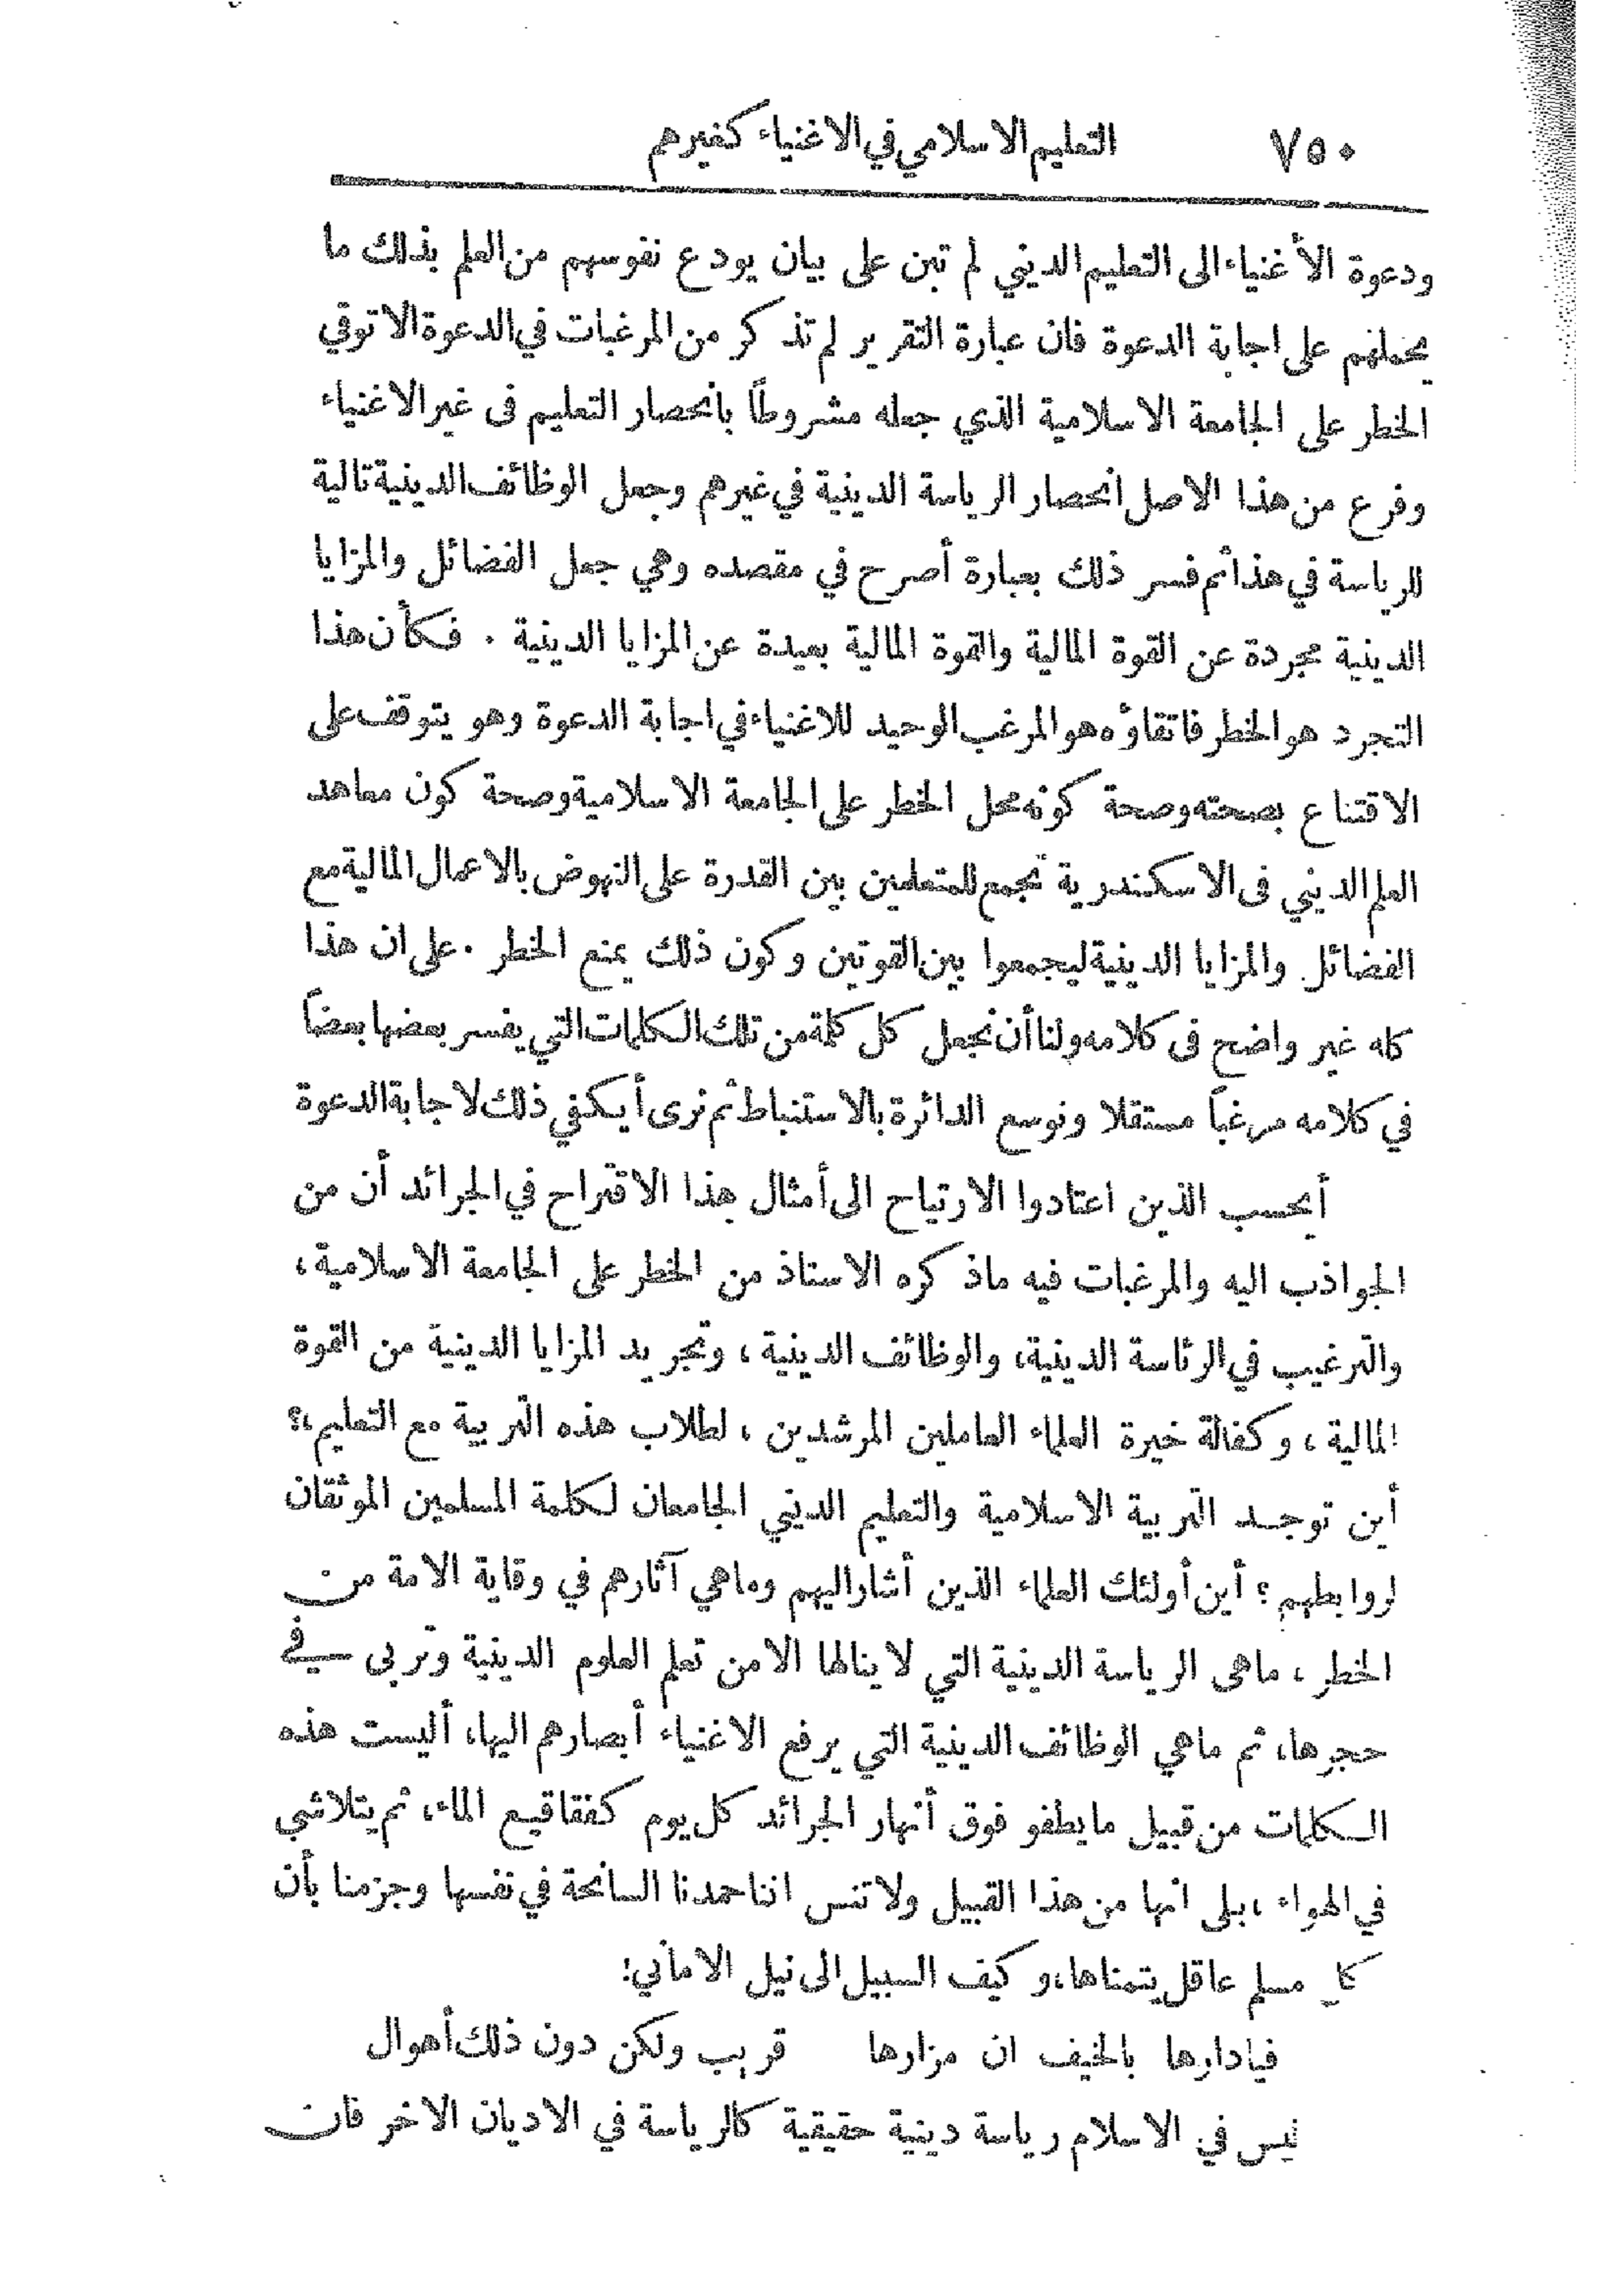 ٧٥٠
التعليم الاسلامي في الاغنياء كغيرهم
ودعوة الأغنياء الى التعليم الديني لم تبن على بيان يودع نفوسهم من العلم بذلك ما
يحملهم على اجابة الدعوة فان عبارة التقرير لم تذكر من المرغبات في الدعوة الا توقي
الخطر على الجامعة الاسلامية الذي جعله مشروطاً بانحصار التعليم فى غير الاغنياء
وفرع من هذا الاصل انحصار الرياسة الدينية في غيرهم وجعل الوظائف الدينية تالية
للرياسة في هذا ثم فسر ذلك بعبارة أصرح في مقصده وهي جعل الفضائل والمزايا
الدينية مجردة عن القوة المالية والقوة المالية بعيدة عن المزايا الدينية . فكأن هذا
التجرد هو الخطر فاتقاؤه هو المرغب الوحيد للاغنياء في اجابة الدعوة وهو يتوقف على
الاقتناع بصحته وصحة كونه محل الخطر على الجامعة الاسلامية وصحة كون معاهد
العلم الديني فى الاسكندرية تجمع للمتعلمين بين القدرة على النهوض بالاعمال المالية مع
الفضائل والمزايا الدينية ليجمعوا بين القوتين وكون ذلك يمنع الخطر . على ان هذا
كله غير واضح فى كلامه ولنا أن نجعل كل كلمة من تلك الكلمات التي يفسر بعضها بعضاً
في كلامه مرغباً مستقلا ونوسع الدائرة بالاستنباط ثم نرى أيكفي ذلك لاجابة الدعوة
أيحسب الذين اعتادوا الارتياح الى أمثال هذا الاقتراح في الجرائد أن من
الجواذب اليه والمرغبات فيه ماذكره الاستاذ من الخطر على الجامعة الاسلامية ،
والترغيب في الرئاسة الدينية، والوظائف الدينية ، وتجريد المزايا الدينية من القوة
المالية ، وكفالة خيرة العلماء العاملين المرشدين ، لطلاب هذه التربية مع التعليم ،؟
أين توجد التربية الاسلامية والتعليم الديني الجامعان لكلمة المسلمين الموثقان
لروابطهم ؟ أين أولئك العلماء الذين أشار اليهم وماهي آثارهم في وقاية الامة من
الخطر ، ماهى الرياسة الدينية التي لا ينالها الا من تعلم العلوم الدينية وتربى في
حجرها، ثم ماهي الوظائف الدينية التي يرفع الاغنياء أبصارهم اليها، أليست هذه
الكلمات من قبيل ما يطفو فوق أنهار الجرائد كل يوم كفقاقيع الماء، ثم يتلاشي
في الهواء ، بلى انها من هذا القبيل ولا تنس اننا حمدنا السانحة في نفسها وجزمنا بأن
كل مسلم عاقل يتمناها، وكيف السبيل الى نيل الاماني؛
فيادارها بالخيف ان مزارها قريب ولكن دون ذلك أهوال
ليس في الاسلام رياسة دينية حقيقية كالرياسة في الاديان الاخر فان